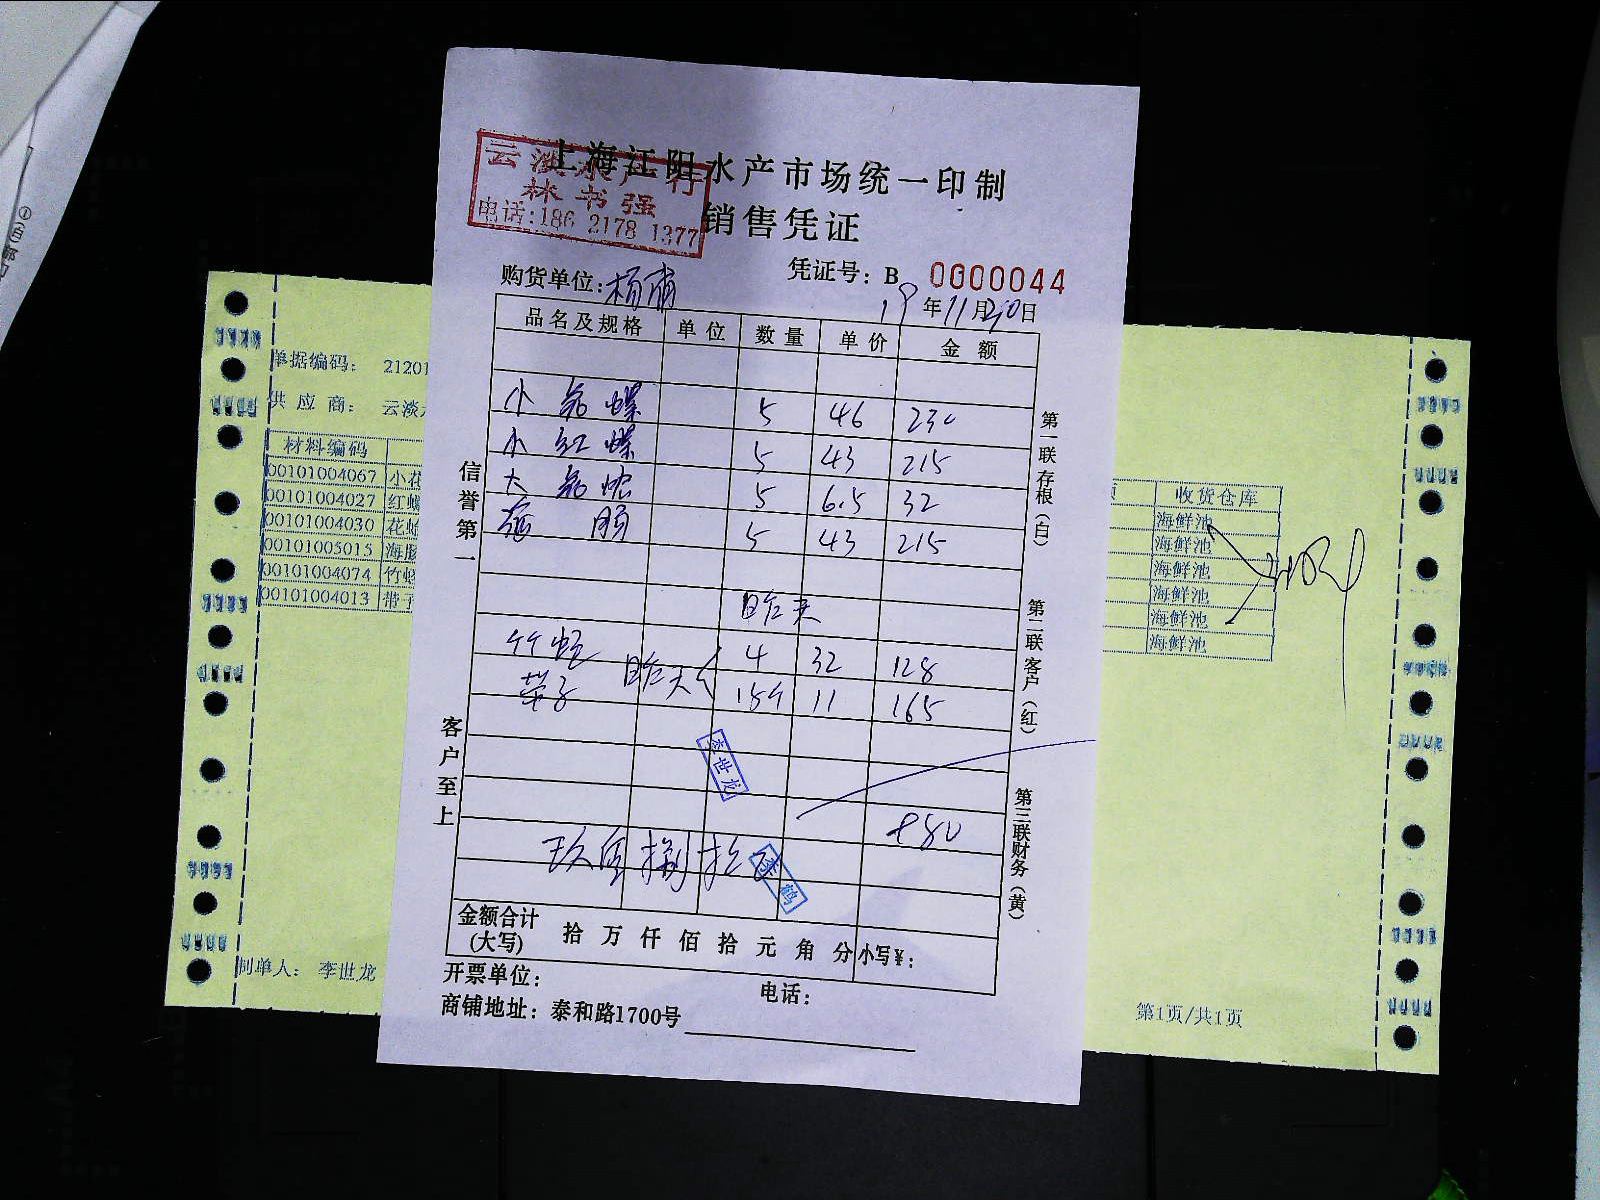 上海江阳水产市场统一印制
销售凭证
云淡水产行
林书强
电话:186 2178 1377
购货单位:
凭证号: B 0000044
19年11月20日
品名及规格 单位 数量 单价 金额
小花螺 5 46 230
小红螺 5 43 215
大花蛤 5 6.5 32
5 43 215
昨天
竹蛏 昨天 4 32 128
15个 11 165
李世龙
980
玖佰捌拾
李鹤
金额合计
(大写) 拾万仟佰拾元角分 小写¥:
开票单位:
电话:
商铺地址: 泰和路1700号
信誉第一
客户至上
第一联存根(白)
第二联客户(红)
第三联财务(黄)
单据编码: 21201
供应商: 云淡
材料编码
00101004067 小花
00101004027 红螺
00101004030 花蛤
00101005015 海肠
00101004074 竹蛏
00101004013 带子
收货仓库
海鲜池
海鲜池
海鲜池
海鲜池
海鲜池
海鲜池
制单人: 李世龙
第1页/共1页